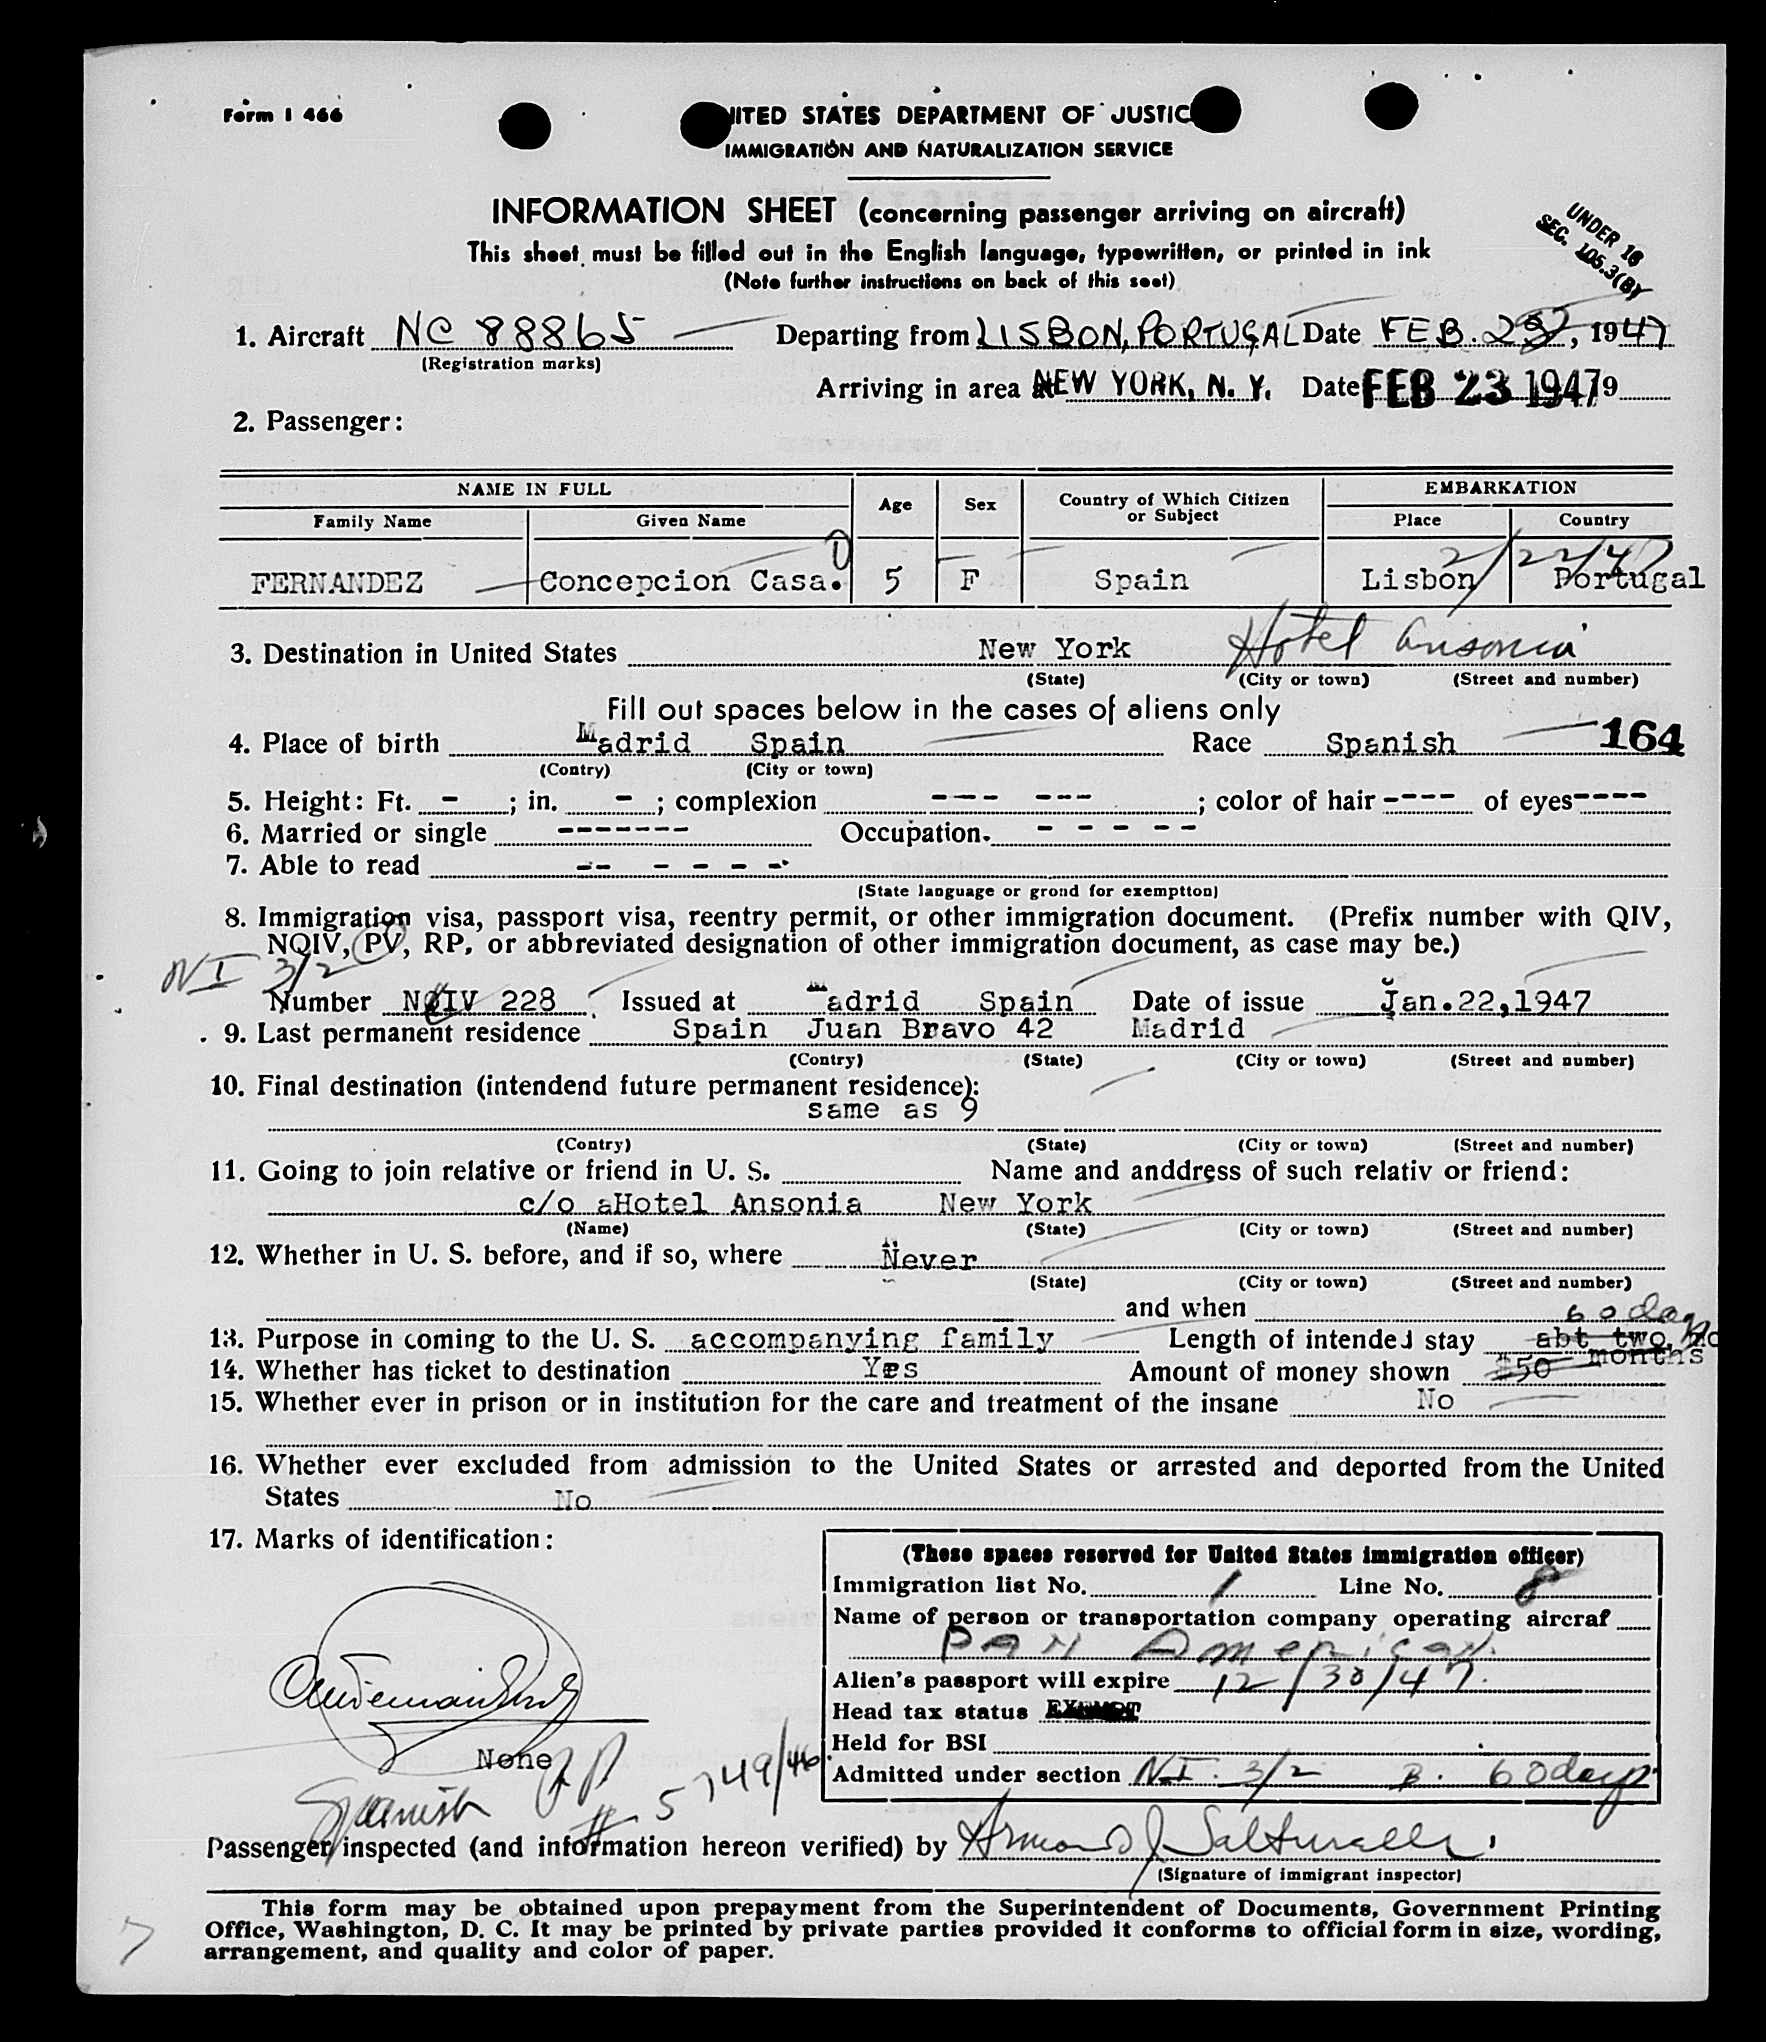 Form I 466
UNITED STATES DEPARTMENT OF JUSTIC
IMMIGRATION AND NATURALIZATION SERVICE
INFORMATION SHEET (concerning passenger arriving on aircraft)
This sheet must be filled out in the English language, typewritten, or printed in ink
(Note further instructions on back of this seet)
UNDER 16
SEC. 105.3(B)
1. Aircraft NC 88865 Departing from LISBON, PORTUGAL Date FEB. 22, 1947
(Registration marks)
Arriving in area NEW YORK, N. Y. Date FEB 23 1947 19
2. Passenger:
NAME IN FULL Age Sex Country of Which Citizen or Subject EMBARKATION
Family Name Given Name Place Country
2/22/47
FERNANDEZ Concepcion Casa. 5 F Spain Lisbon Portugal
3. Destination in United States New York Hotel Ansonia
(State) (City or town) (Street and number)
Fill out spaces below in the cases of aliens only
4. Place of birth Madrid Spain Race Spanish 164
(Contry) (City or town)
5. Height: Ft. - ; in. - ; complexion --- --- ; color of hair ---- of eyes ----
6. Married or single ------- Occupation. - - - - -
7. Able to read -- - - - -
(State language or grond for exemptton)
8. Immigration visa, passport visa, reentry permit, or other immigration document. (Prefix number with QIV,
NQIV, PV, RP, or abbreviated designation of other immigration document, as case may be.)
NI 3/2
Number NQIV 228 Issued at Madrid Spain Date of issue Jan.22,1947
9. Last permanent residence Spain Juan Bravo 42 Madrid
(Contry) (State) (City or town) (Street and number)
10. Final destination (intendend future permanent residence):
same as 9
(Contry) (State) (City or town) (Street and number)
11. Going to join relative or friend in U. S. Name and anddress of such relativ or friend:
c/o aHotel Ansonia New York
(Name) (State) (City or town) (Street and number)
12. Whether in U. S. before, and if so, where Never
(State) (City or town) (Street and number)
and when
60 days
13. Purpose in coming to the U. S. accompanying family Length of intended stay abt two
months
14. Whether has ticket to destination Yes Amount of money shown $50
15. Whether ever in prison or in institution for the care and treatment of the insane No
16. Whether ever excluded from admission to the United States or arrested and deported from the United
States No
17. Marks of identification:
None
Spanish PP
# 5749/46
(These spaces reserved for United States immigration officer)
Immigration list No. 1 Line No. 8
Name of person or transportation company operating aircraf
Pan American
Alien's passport will expire 12/30/47.
Head tax status EXEMPT
Held for BSI
Admitted under section NI. 3/2 B. 60 days
Passenger inspected (and information hereon verified) by
(Signature of immigrant inspector)
This form may be obtained upon prepayment from the Superintendent of Documents, Government Printing
Office, Washington, D. C. It may be printed by private parties provided it conforms to official form in size, wording,
arrangement, and quality and color of paper.